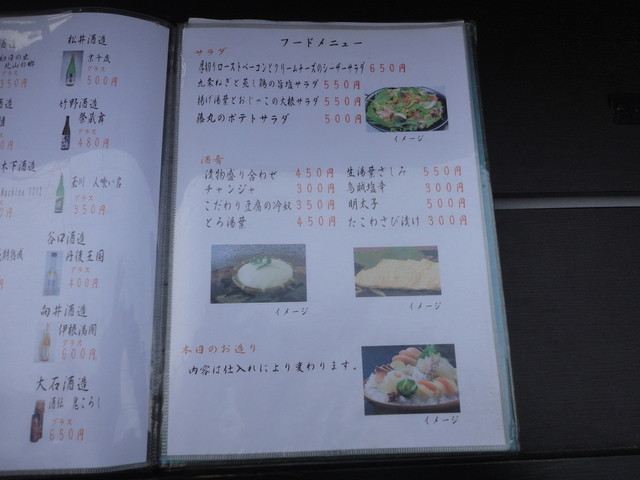 松井酒造
京千歳
グラス
500円
350円
竹野酒造
祭蔵舞
グラス
480円
木下酒造
玉川 人喰い岩
グラス
550円
谷口酒造
丹後王国
グラス
400円
向井酒造
伊根満開
グラス
600円
大石酒造
酒伝 鬼ころし
グラス
650円
フードメニュー
サラダ
厚切りローストベーコンとクリームチーズのシーザーサラダ 650円
九条ねぎと蒸し鶏の旨塩サラダ 550円
揚げ湯葉とおじゃこの大根サラダ 550円
藤丸のポテトサラダ 500円
イメージ
酒肴
漬物盛り合わせ 450円
チャンジャ 300円
こだわり豆腐の冷奴 350円
とろ湯葉 450円
生湯葉さしみ 550円
烏賊塩辛 300円
明太子 500円
たこわさび漬け 300円
イメージ
イメージ
本日のお造り
内容は仕入れにより変わります。
イメージ